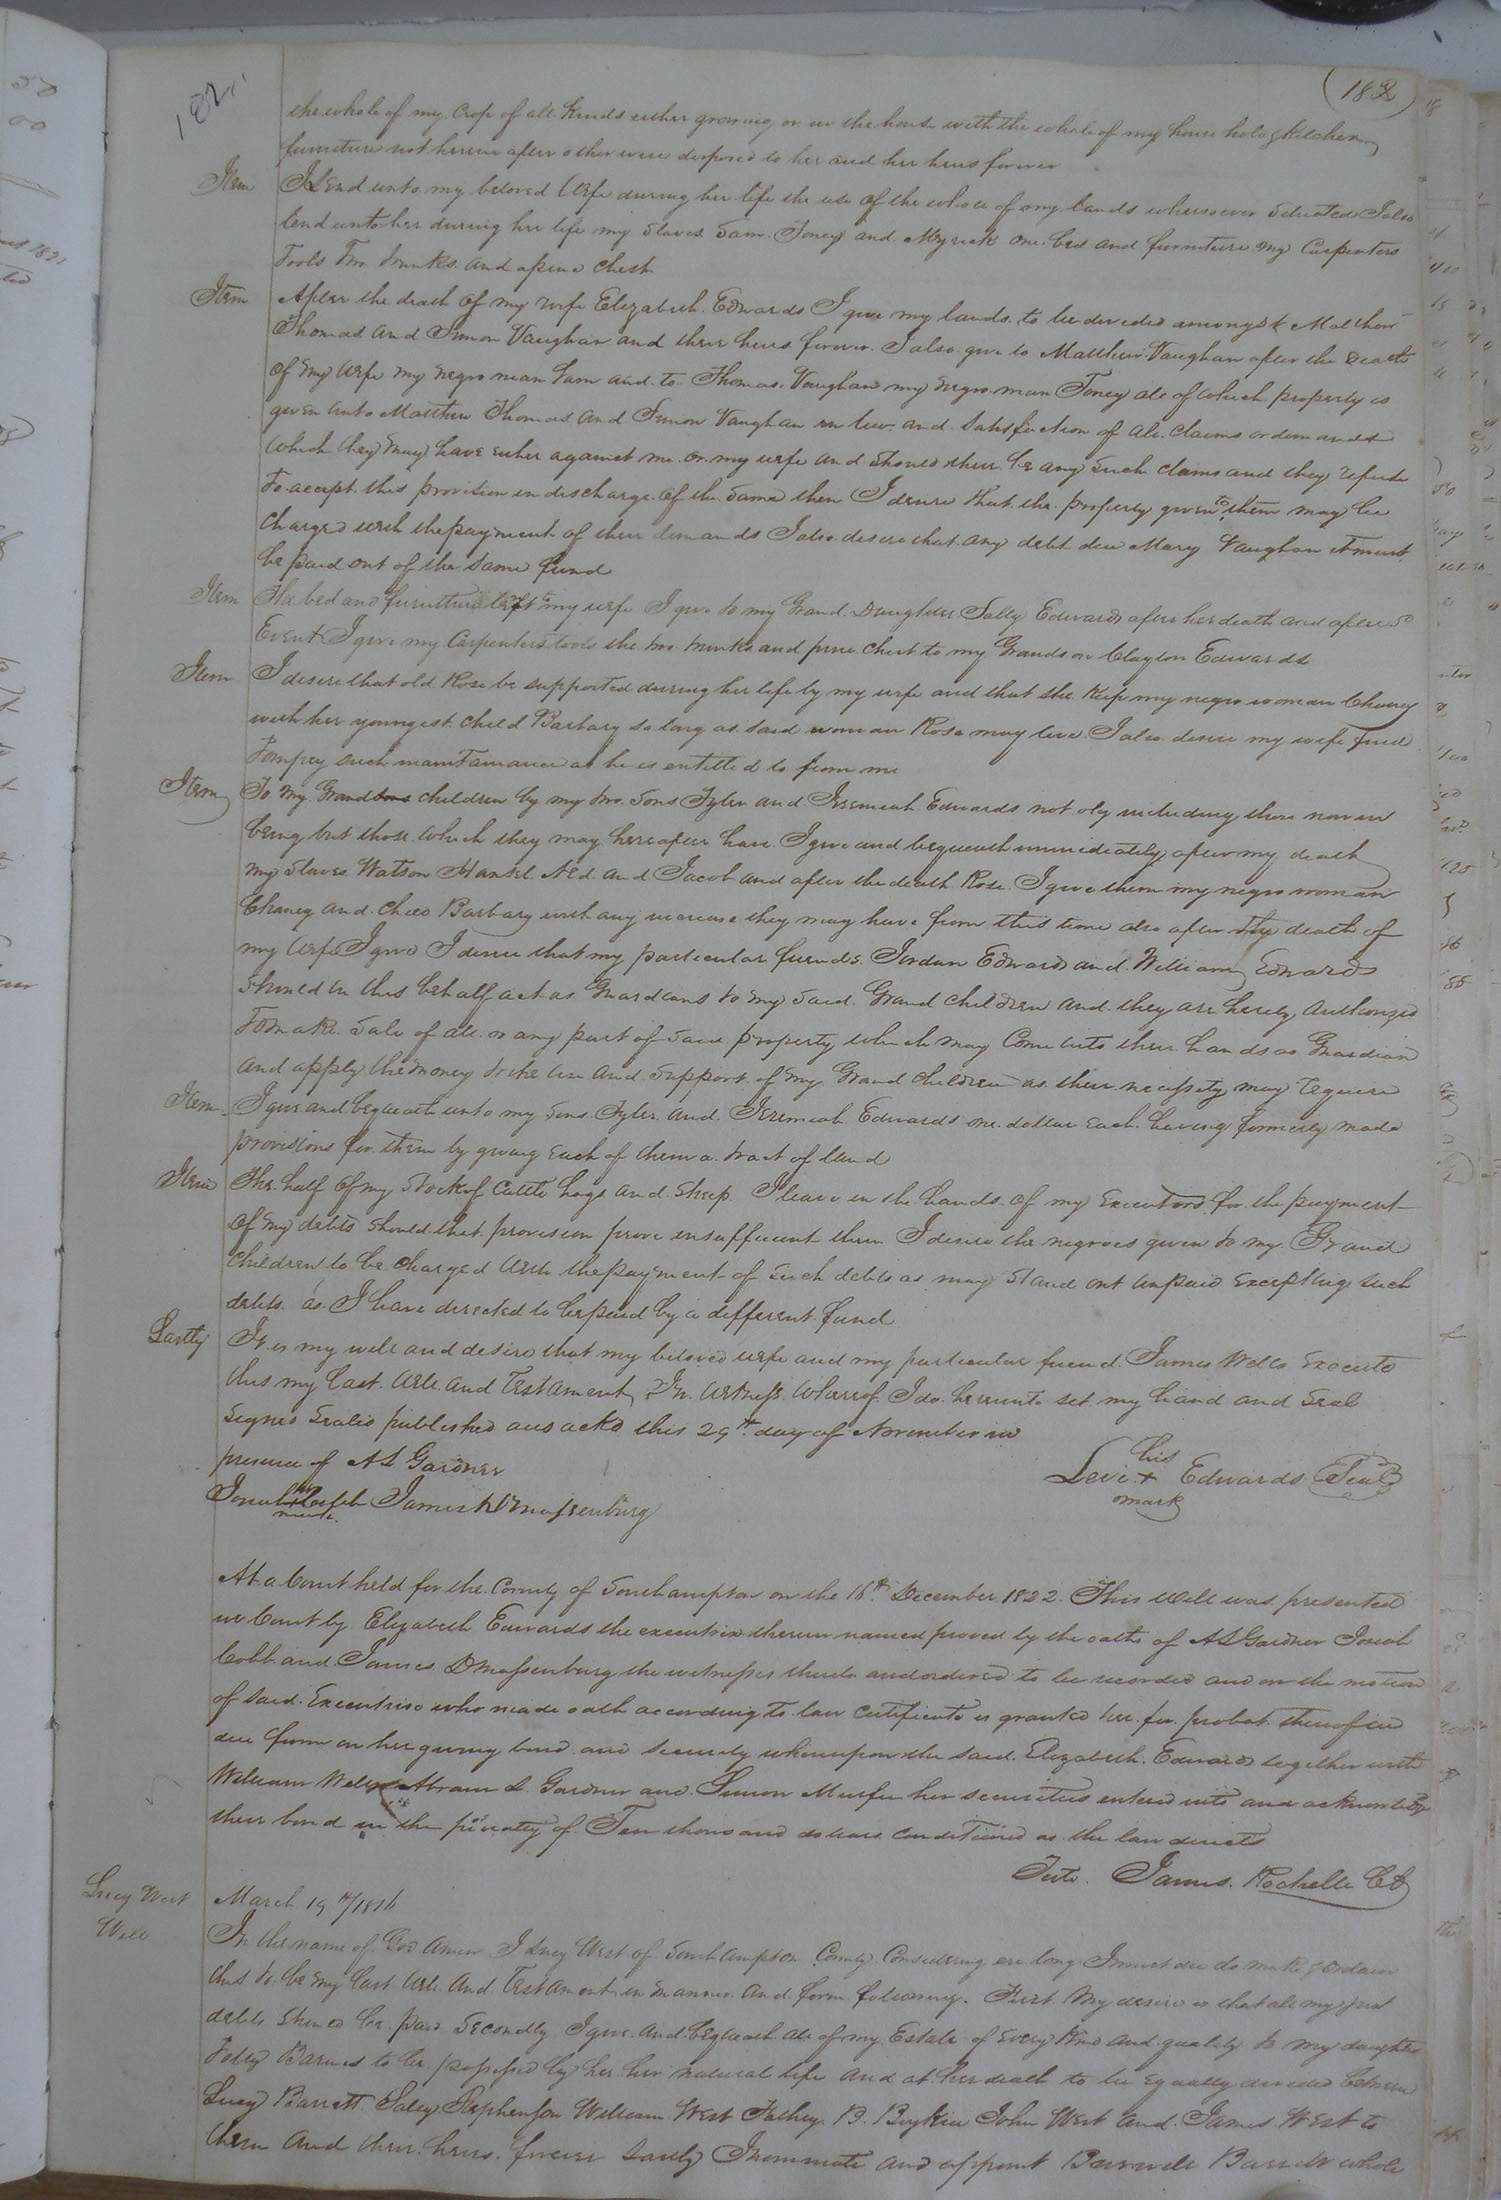 182
(182)
the whole of my Crop of all kinds either growing or in the house with the whole of my house hold & kitchen
furniture not herein after other wise disposed to her and her heirs forever
Item I Lend unto my beloved Wife during her life the use of the whole of my lands wheresoever Situated I also
lend unto her during her life my Slaves Sam Toney and Myrick one bed and furniture my Carpenters
Tools Two trunks and a pine chest
Item After the death of my wife Elizabeth Edwards I give my lands to be devided amongst Matthew
Thomas and Simon Vaughan and their heirs forever I also give to Matthew Vaughan after the death
of my wife my negro man Sam and to Thomas Vaughan my negro man Toney all of which property is
given unto Matthew Thomas and Simon Vaughan in lieu and Satisfaction of all Claims or demands
which they may have either against me or my wife and should their be any such claims and they refuse
To accept this provision in discharge of the Same then I desire that the property given to them may be
Charged with the payment of their demands I also desire that any debt due Mary Vaughan
be paid out of the Same fund
Item The bed and furniture left to my wife I give to my Grand Daughter Sally Edwards after her death and after sd
Event I give my Carpenters tools the two trunks and pine Chest to my Grandson Clayton Edwards
Item I desire that old Rose be supported during her life by my wife and that she keep my negro woman Chaney
with her youngest child Barbary so long as said woman Rose may live I also desire my wife find
Pompey such maintainance as he is entitled to from me
Item To my Grand children by my two Sons Tyler and Jeremiah Edwards not oly including those now in
being but those which they may hereafter have I give and bequeath immediately after my death
my Slaves Watson Hansel Ned and Jacob and after the death Rose I give them my negro woman
Chaney and child Barbary with any increase they may have from this time also after the death of
my wife I give I desire that my particular friends Jordan Edwards and William Edwards
Should in this behalf act as Guardians to my Said Grand children and they are hereby authorized
To make Sale of all or any part of Said property which may Come into their hands as Guardian
and apply the money to the use and Support of my Grand children as their necessity may require
Item I give and bequeath unto my Sons Tyler and Jeremiah Edwards one dollar each having formerly made
provisions for them by giving each of them a tract of land
Item The half of my Stock of Cattle hogs and Sheep I leave in the hands of my Executors for the payment
of my debts should that provision prove insufficient then I desire the negroes given to my Grand
Children to be Charged with the payment of such debts as may stand out unpaid excepting such
debts as I have directed to be paid by a different fund
Lastly It is my will and desire that my beloved wife and my particular friend James Wells Execute
this my last will and Testament In Witness whereof I do hereunto set my hand and Seal
Signed Sealed published and ackd this 29th day of November in
presence of A L Gardner
his
Levi + Edwards (Seal)
mark
Josiah + Cobb James D Massenburg
mark
At a Court held for the County of Southampton on the 16th December 1822. This Will was presented
in Court by Elizabeth Edwards the executrix therein named proved by the oaths of A L Gardner Josiah
Cobb and James D Massenburg the witnesses thereto and ordered to be recorded and on the motion
of said Executrix who made oath according to law certificate is granted her for probat thereof in
due form on her giving bond and security whereupon the said Elizabeth Edwards together with
William Wells Abram L Gardner and Simon Murfee her securities entered into and acknowledged
their bond in the penalty of Ten thousand dollars conditioned as the law directs
Teste James Rochelle CC
Lucy West
Will
March 19th/1816
In the name of God Amen I Lucy West of Southampton County Considering ere long I must die do make & ordain
this to be my last will and Testament in manner and form following. First My desire is that all my just
debts should be paid Secondly I give and bequeath all of my Estate of every kind and quality to my daughter
Polly Barnes to be possessed by her her natural life and at her death to be equally devided between
Lucy Barrett Salley Stephenson William West Fathey B. Boykin John West and James West to
them and their heirs forever Lastly I nominate and appoint Burwell Barrett whole